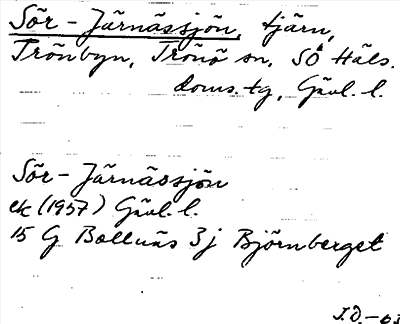 Sör-Järnässjön, tjärn,
Trönbyn, Trönö sn, SÖ Häls.
doms.tg, Gävl. l.
Sör-Järnässjön
ek (1957) Gävl. l.
15 G Bollnäs 3 j Björnberget
J.Ö.-63